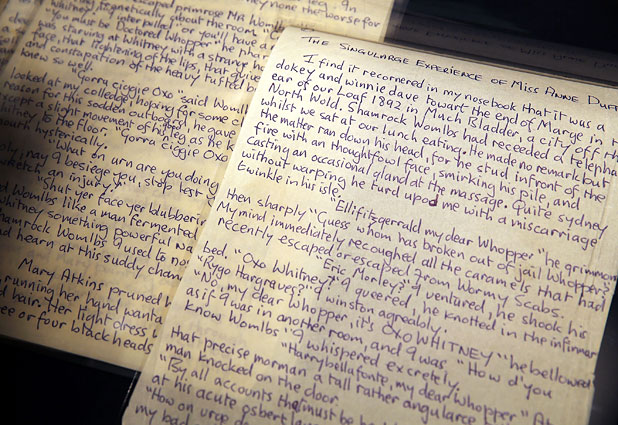 leg. 9n
escaped primrose Mrs Womlb
none the worse for
whitney, frignetically about the room
"You must be
or you'll have a
textered whopper" he
was starving at whitney with a strange
face, that tightening of the lips, that
and consternation of the heavy tufted b
knew so well.
"Gorra ciggie Oxo" said Womlb
looked at my colledge, hoping for some cl
reason for this sodden outboarst, he gave
except a slight movement of his leg as he k
whitney to the floor, "Gorra ciggie Oxo
mouth hysterically.
"What on urn are you doing
nay 9 besiege you, stop
wretch an injury"
"Shut yer face yer blubbering
Womlbs like a man fermented
whitney something powerful na
Shamrock Womlbs 9 used to no
and hearn at this suddy chang
Mary Atkins pruned
running her hand
hair. Her tight dress
three or four black heads
THE SINGULARGE EXPERIENCE OF MISS ANNE DUFF
I find it recornered in my nosebook that it was a
dokey and winnie dave towart the end of Marge in t
ear of our Loaf 1892 in Much Bladder, a city off th
North Wold. Shamrock Womlbs had receeded a telephan
whilst we sat at our lunch eating. He made no remark but
the matter ran down his head, for he stud infront of the
fire with an thoughtfowl face, smirking his pile, and
Casting an occasional gland at the massage. Quite sydney
without warping he turd upod me with a miscarriage
twinkle in his isle.
"Ellifitzgerrald my dear Whopper" he grimmon
then sharply "Guess whom has broken out of jail Whopper?
My mind immediately recoughed all the caramels that had
recently escaped or escaped from Wormy Scabs.
"Eric Morley?" 9 ventured, he shook his
bed. "Oxo Whitney?" 9 queered, he knotted in the infirmar
"Rygo Hargraves?" 9 winston agreably.
"No, my dear Whopper, it's OXO WHITNEY" he bellowed
as if 9 was in another room, and 9 was. "How d'you
know Womlbs" 9 whispered excretely.
"Harrybellafonte, my dear Whopper" At
that precise morman a tall rather angularce t
man knocked on the door
"By all accounts
must be
at his acute osbert
"How on
my bad